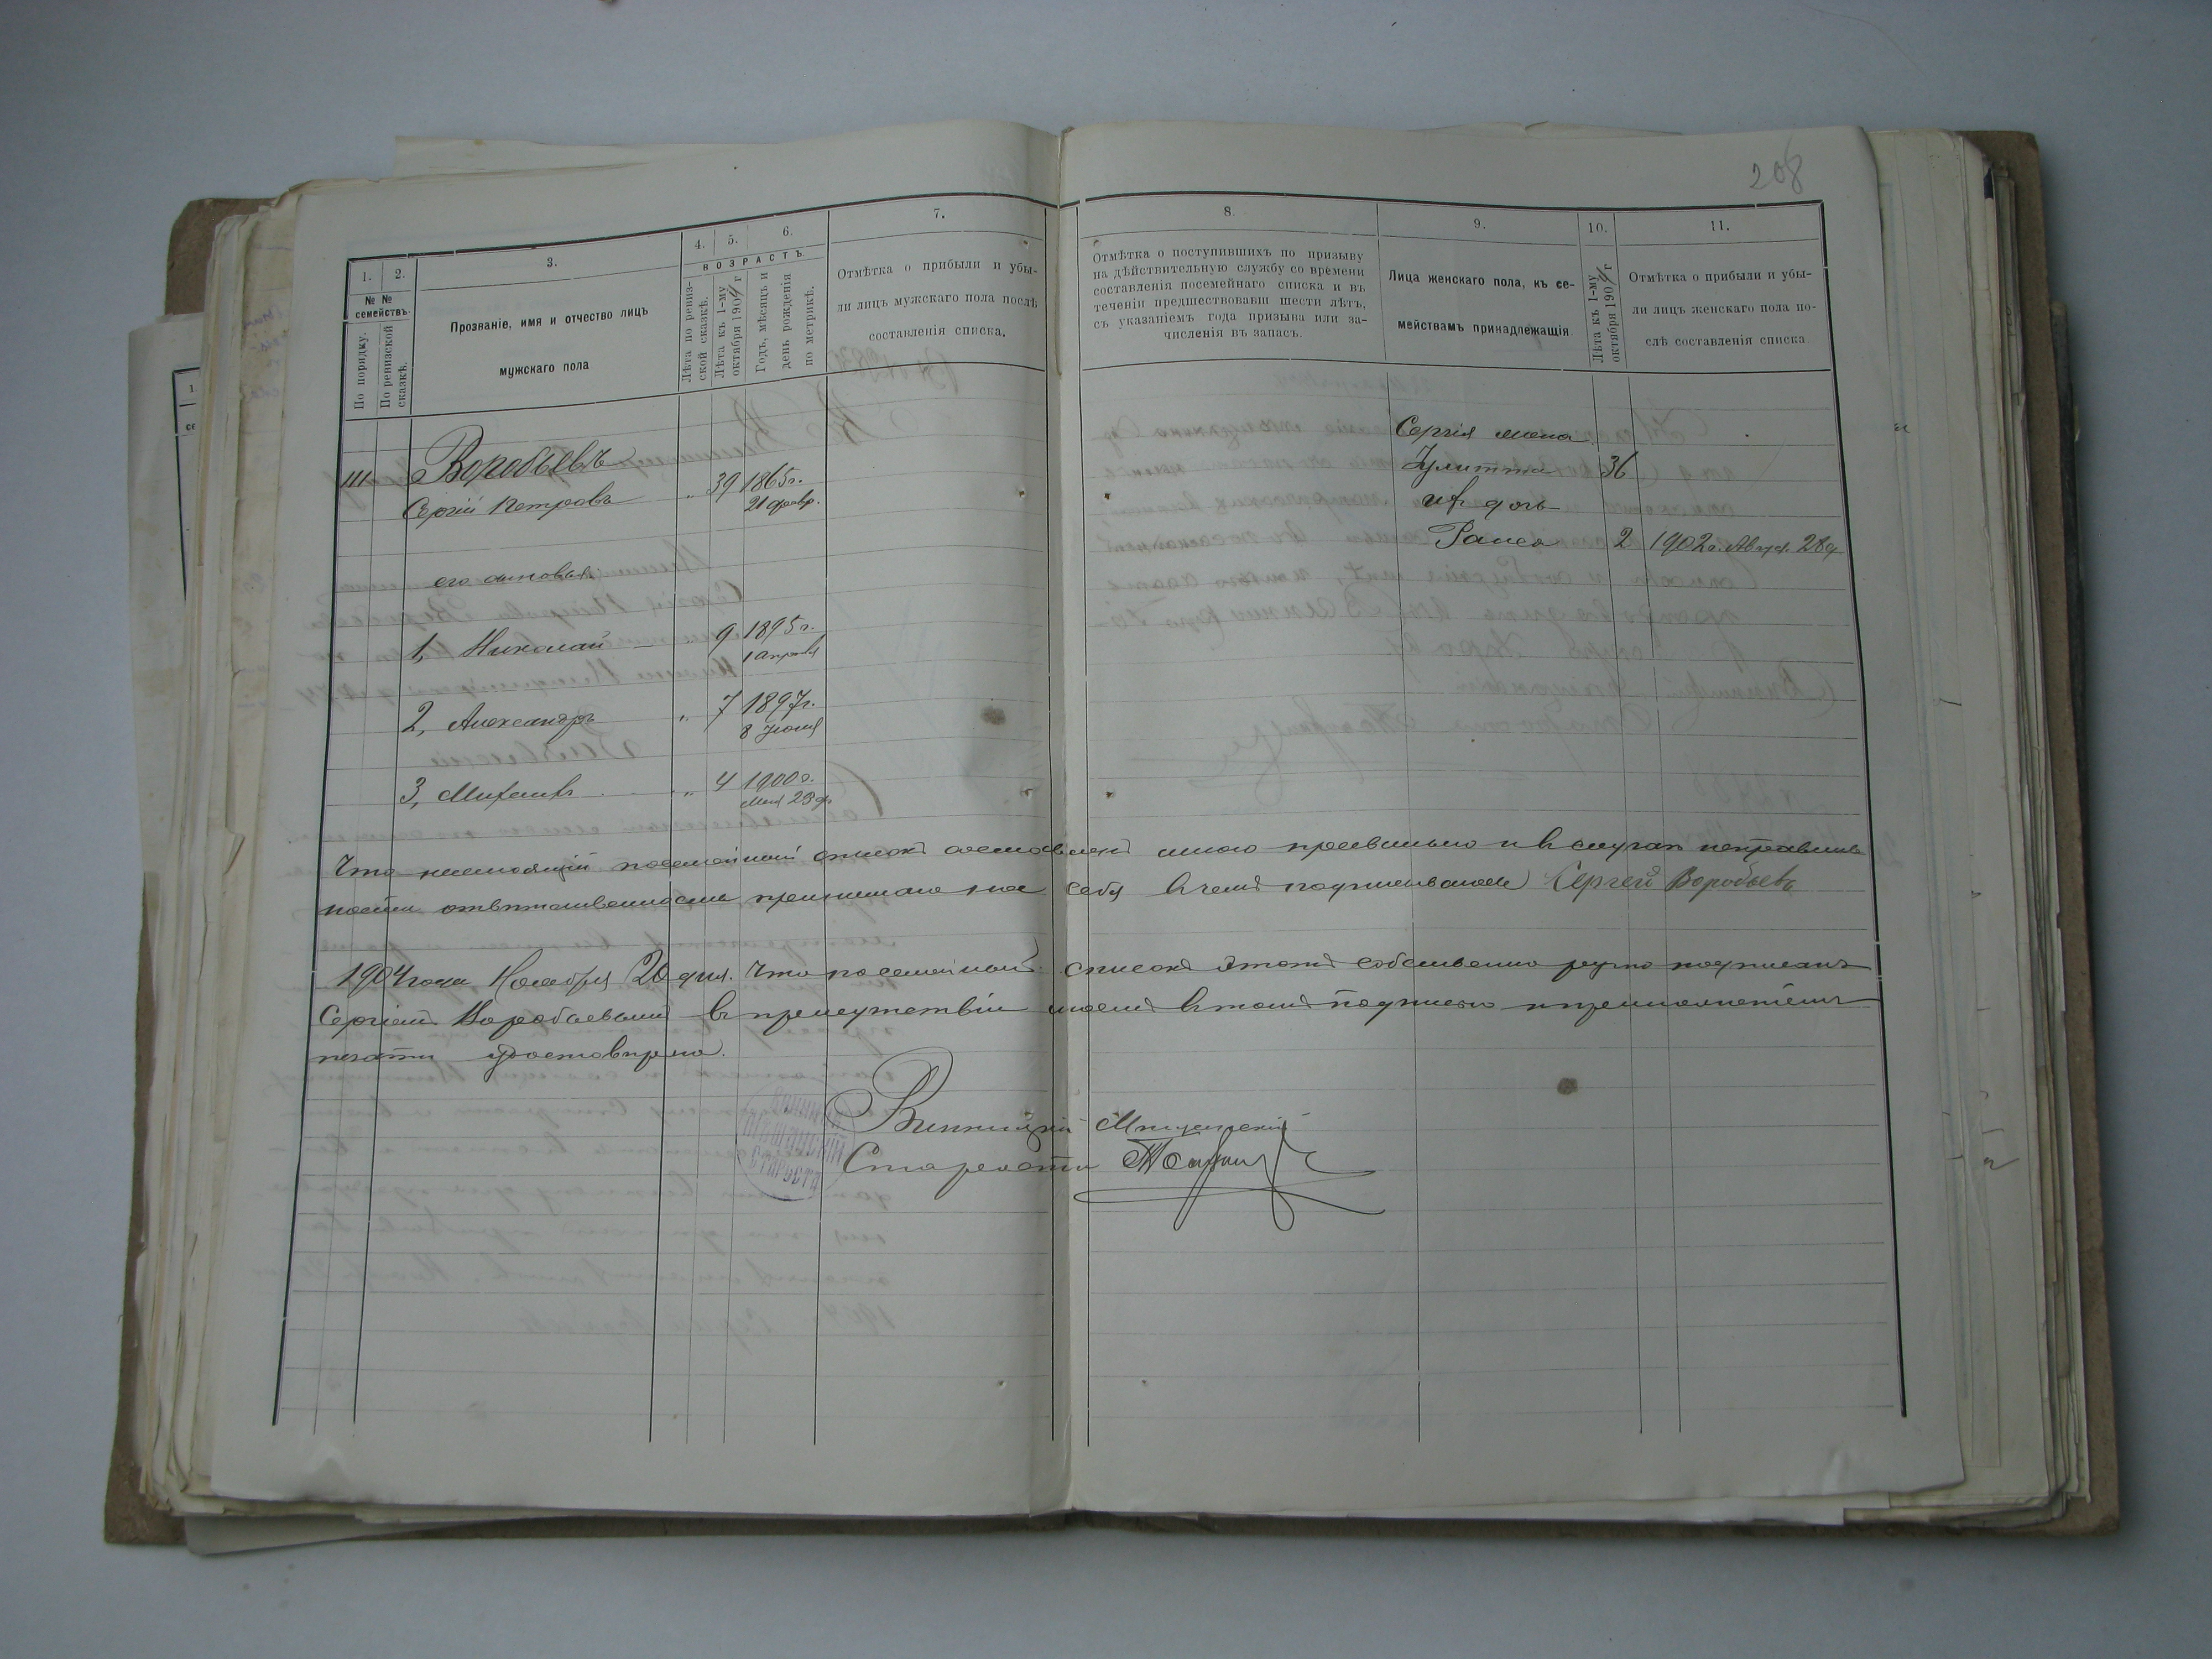 208
1.
2.
3.
4.
5.
6.
7.
8.
9.
10.
11.
№ №
семействъ.
По порядку.
По ревизской
сказкѣ.
Прозваніе, имя и отчество лицъ
мужскаго пола
ВОЗРАСТЪ.
Лѣта по ревиз-
ской сказкѣ.
Лѣта къ 1-му
октября 1904 г
Годъ, мѣсяцъ и
день рожденія
по метрикѣ.
Отмѣтка о прибыли и убы-
ли лицъ мужскаго пола послѣ
составленія списка.
Отмѣтка о поступившихъ по призыву
на дѣйствительную службу со времени
составленія посемейнаго списка и въ
теченіи предшествовавш шести лѣтъ,
съ указаніемъ года призыва или за-
численія въ запасъ.
Лица женскаго пола, къ се-
мействамъ принадлежащія
Лѣта къ 1-му
октября 1904 г
Отмѣтка о прибыли и убы-
ли лицъ женскаго пола по-
слѣ составленія списка.
Воробьевъ
Сергій Петровъ „ 39 1865 г.
21 февр.
его сыновья:
1, Николай „ 9 1895 г.
1 апрѣля
2, Александръ „ 7 1897 г.
8 Іюня
3, Михаилъ „ 4 1900 г.
Мая 23 д.
Сергія жена
Улитта 36
ихъ дочь
Раиса 2 1902 г. Август. 28 д
Что настоящій посемейный списокъ составленъ мною правильно и въ случаѣ неправиль
ности отвѣтственность принимаю на себя въ чемъ подписываюсь Сергей Воробьевъ
1904 года Ноября 20 дня. Что посемейный списокъ этотъ собственно ручно подписанъ
Сергіемъ Воробьевымъ въ присутствіи моемъ въ томъ подписью и приложеніемъ
печати удостовѣряю.
Винницкій Мѣщанскій
Староста
СТАРОСТА